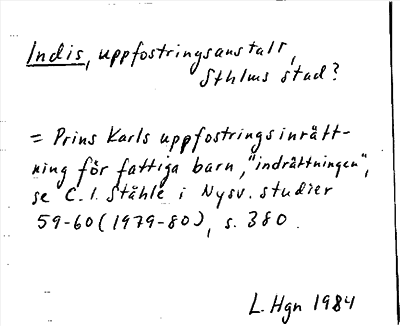 Indis, uppfostringsanstalt,
Sthlms stad?
= Prins Karls uppfostringsinrätt-
ning för fattiga barn, "indrättningen",
se C.I. Ståhle i Nysv. studier
59-60 (1979-80), s. 380.
L. Hgn 1984